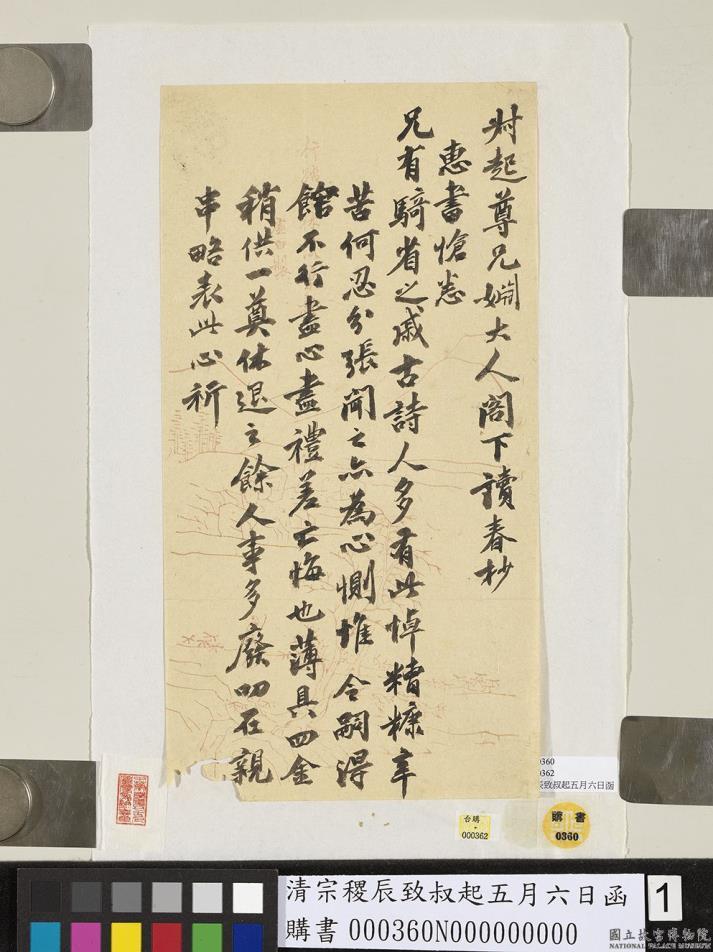 尗起尊兄姻大人閣下讀春杪
惠書愴恙
兄有騎省之戚古詩人多有此悼糟糠辛
苦何忍分張聞之亦為心惻惟令嗣得
館不行盡心盡禮差亡悔也薄具四金
稍供一奠休退之餘人事多廢叨在親
串略表此心祈
0360
0362
辰致叔起五月六日函
台購
000362
購書
0360
清宗稷辰致叔起五月六日函
購書 000360N000000000
1
國立故宮博物院
NATIONAL PALACE MUSEUM